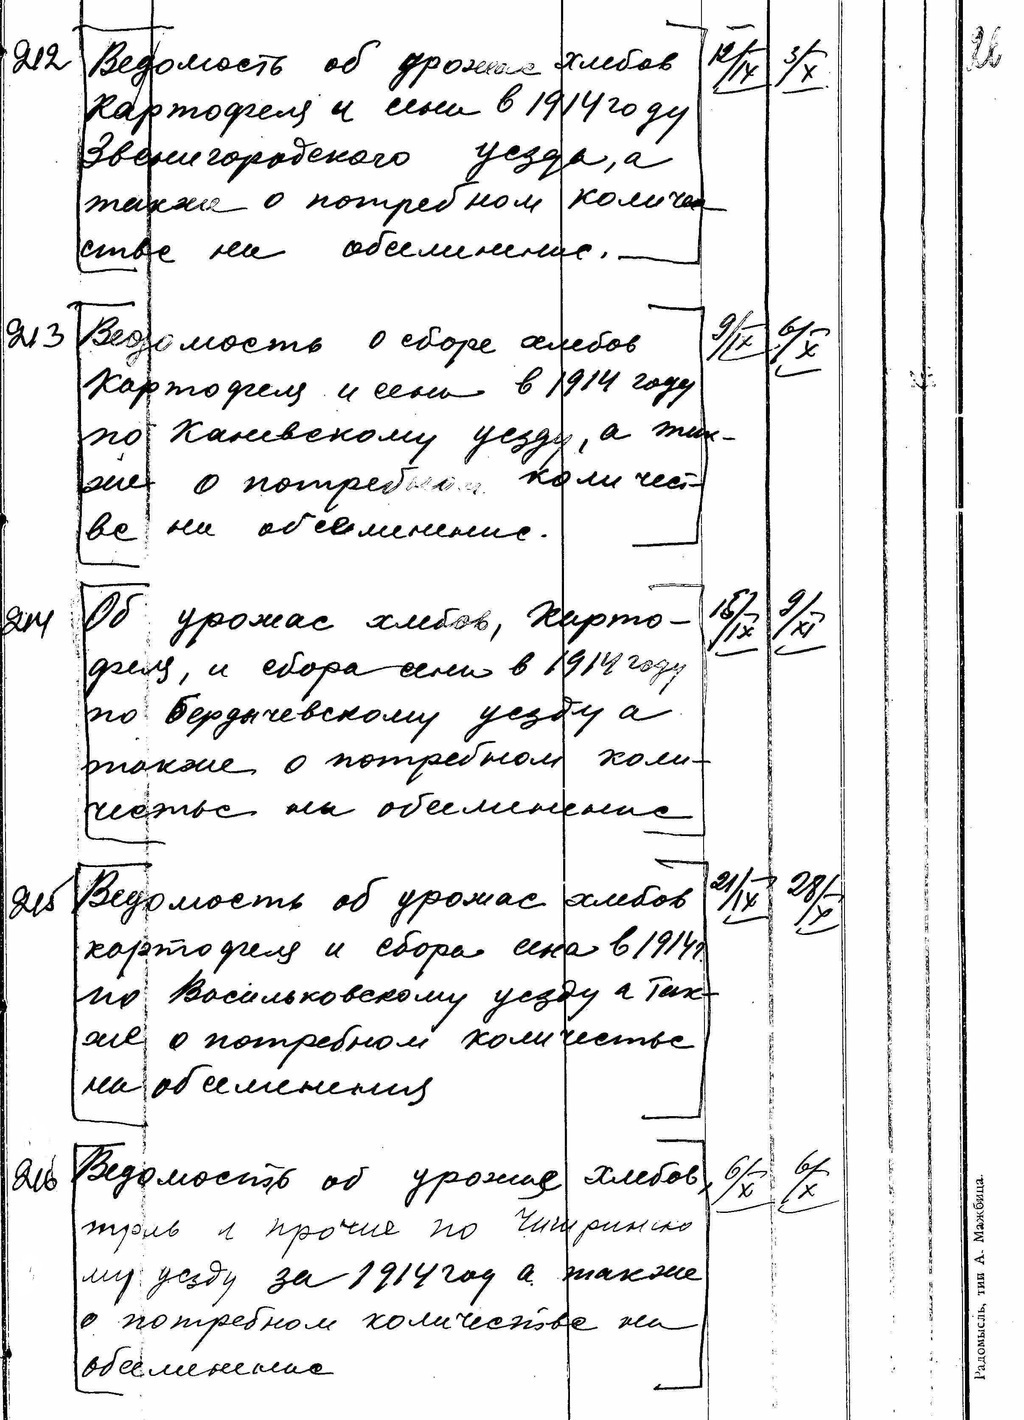 26
212 Ведомость об урожае хлебов 12/IX 3/X
картофеля и сена в 1914 году
Звенигородского уезда, а
также о потребном количе
стве на обсеменение.
213 Ведомость о сборе хлебов 9/IX 6/X
картофеля и сена в 1914 году
по Каневскому уезду, а так-
же о потребном количест-
ве на обсеменение.
214 Об урожае хлебов, карто- 15/IX 9/XI
феля, и сбора сена в 1914 году
по Бердычевскому уезду а
также о потребном коли-
честве на обсеменение
215 Ведомость об урожае хлебов 21/IX 28/X
картофеля и сбора сена в 1914 г.
по Васильковскому уезду а так-
же о потребном количестве
на обсеменения
216 Ведомость об урожае хлебов, 6/X 6/X
и прочие по Чигиринско
му уезду за 1914 год а также
о потребном количестве на
обсеменение
Радомысль, тип А. Мажбица.